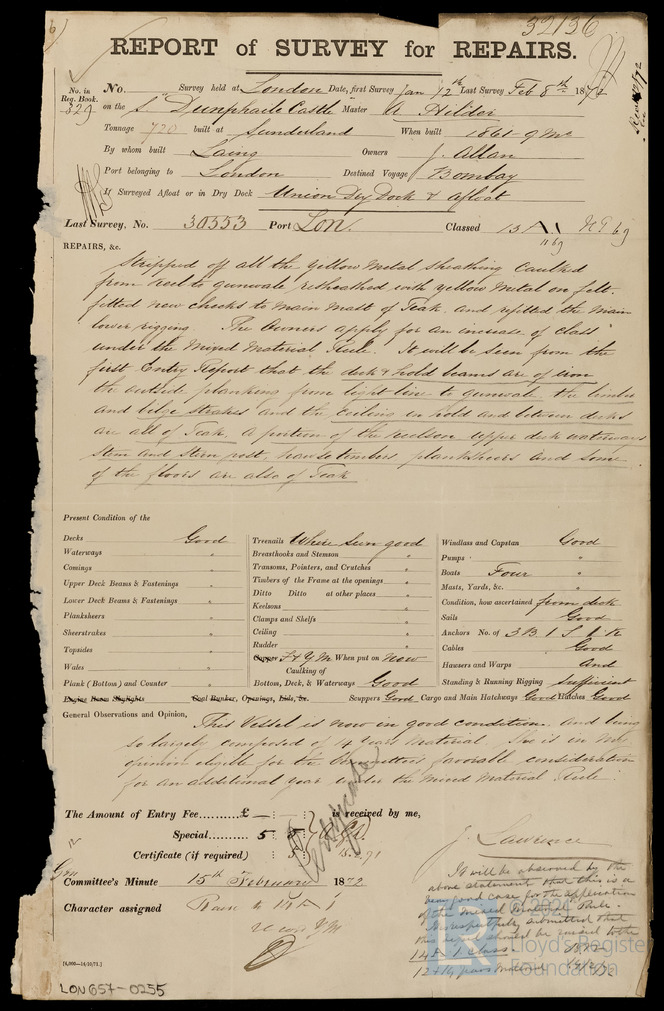 32136
REPORT of SURVEY for REPAIRS.
No. in Reg. Book. 329
No. Survey held at London Date, first Survey Jan 12th Last Survey Feb 8th 1872
on the S "Dunphaile Castle" Master A Hilder
Tonnage 720 built at Sunderland When built 1861 9 Mo
By whom built Laing Owners J. Allan
Port belonging to London Destined Voyage Bombay
If Surveyed Afloat or in Dry Dock Union Dry Dock & Afloat
Last Survey, No. 30553 Port Lon. Classed 13 A 1
11 69
REPAIRS, &c.
Stripped off all the Yellow Metal Sheathing Caulked
from keel to gunwale resheathed with yellow Metal on felt.
fitted new cheeks to Main Mast of Teak and refitted the Main
lower rigging. The Owners apply for an increase of Class
under the Mixed Material Rule. It will be seen from the
first Entry Report that the deck & hold beams are of iron
the outside planking from light line to gunwale the limber
and bilge strakes and the ceiling in hold and between decks
are all of Teak, a portion of the keelson upper deck waterways
Stem and Stern post, hawse timbers, planksheers and some
of the floors are also of Teak
Present Condition of the
Decks Good
Waterways "
Comings "
Upper Deck Beams & Fastenings "
Lower Deck Beams & Fastenings "
Planksheers "
Sheerstrakes "
Topsides "
Wales "
Plank (Bottom) and Counter "
Treenails Where seen good
Breasthooks and Stemson "
Transoms, Pointers, and Crutches "
Timbers of the Frame at the openings "
Ditto Ditto at other places "
Keelsons "
Clamps and Shelfs "
Ceiling "
Rudder "
Copper F & YM When put on Now
Caulking of
Bottom, Deck, & Waterways Good
Windlass and Capstan Good
Pumps "
Boats Four "
Masts, Yards, &c. "
Condition, how ascertained from deck
Sails Good
Anchors No. of 3 B. 1 S. 1 K
Cables Good
Hawsers and Warps And
Standing & Running Rigging Sufficient
Engine Room Skylights Coal Bunker, Openings, Lids, &c. Scuppers Good Cargo and Main Hatchways Good Hatches Good
General Observations and Opinion, This Vessel is now in good condition. And being
so largely composed of 4 Years Material. She is in my
opinion eligible for the Committees favorable consideration
for an additional year under the Mixed Material Rule.
The Amount of Entry Fee......... £ — : — : is received by me,
Special......... 5 : 5 :
Certificate (if required) : 5 :
J. Lawrence
Committee's Minute 15th February 1872
Character assigned
It will be observed by the
above statement that this is a
very good case for the application
of the Mixed Material Rule.
respectfully submitted that
this should be raised to the
14 A 1 Class
[4,000—14/10/71.]
LON657-0255
© 2021
LR
Lloyd's Register
Foundation